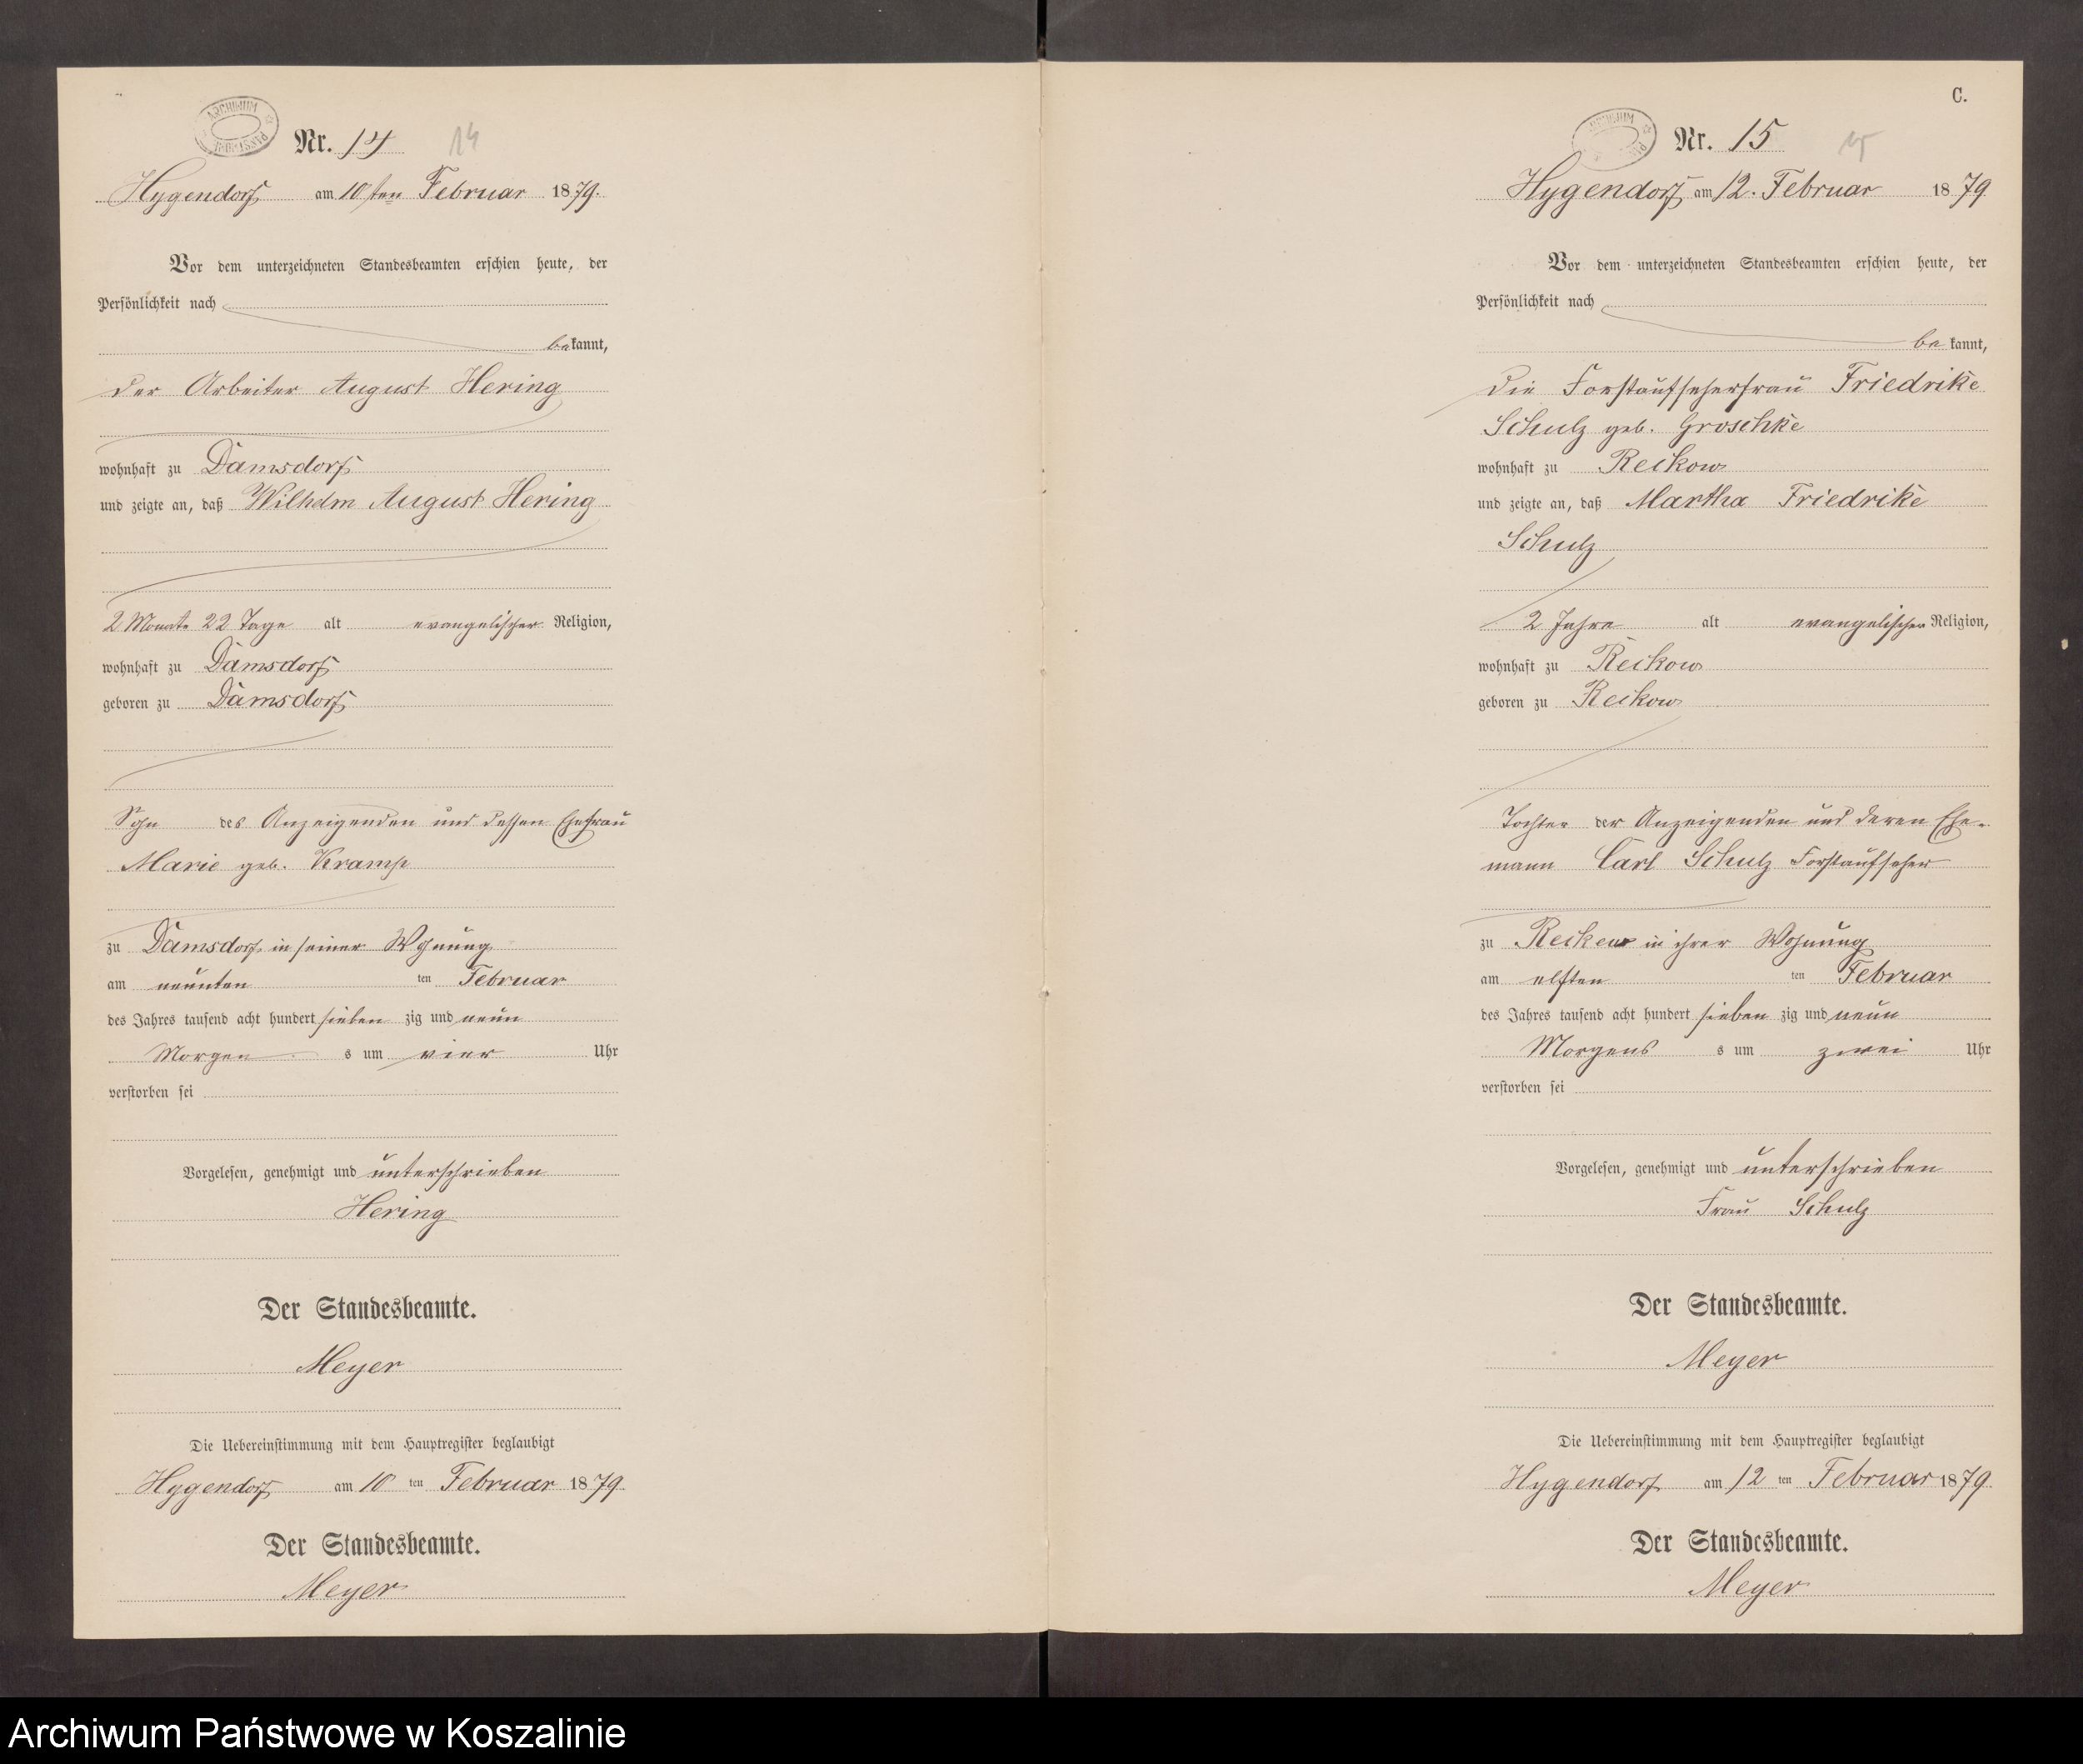 Nr. 14 14
Hygendorf am 10ten Februar 1879.
Vor dem unterzeichneten Standesbeamten erschien heute, der
Persönlichkeit nach
bekannt,
der Arbeiter August Hering
wohnhaft zu Damsdorf
und zeigte an, daß Wilhelm August Hering
2 Monate 22 Tage alt evangelischer Religion,
wohnhaft zu Damsdorf
geboren zu Damsdorf
Sohn des Anzeigenden und dessen Ehefrau
Marie geb. Kramp
zu Damsdorf in seiner Wohnung
am neunten ten Februar
des Jahres tausend acht hundert sieben zig und neun
Morgen s um vier Uhr
verstorben sei
Vorgelesen, genehmigt und unterschrieben
Hering
Der Standesbeamte.
Meyer
Die Uebereinstimmung mit dem Hauptregister beglaubigt
Hygendorf am 10 ten Februar 1879.
Der Standesbeamte.
Meyer
C.
ARCHIWUM
Nr. 15 15
Hygendorf am 12. Februar 1879.
Vor dem unterzeichneten Standesbeamten erschien heute, der
Persönlichkeit nach
bekannt,
die Forstaufseherfrau Friedrike
Schulz geb. Groschke
wohnhaft zu Reckow
und zeigte an, daß Martha Friedrike
Schulz
2 Jahre alt evangelischer Religion,
wohnhaft zu Reckow
geboren zu Reckow
Tochter der Anzeigenden und deren Ehe-
mann Carl Schulz Forstaufseher
zu Reckow in ihrer Wohnung
am elften ten Februar
des Jahres tausend acht hundert sieben zig und neun
Morgens s um zwei Uhr
verstorben sei
Vorgelesen, genehmigt und unterschrieben
Frau Schulz
Der Standesbeamte.
Meyer
Die Uebereinstimmung mit dem Hauptregister beglaubigt
Hygendorf am 12 ten Februar 1879.
Der Standesbeamte.
Meyer
Archiwum Państwowe w Koszalinie